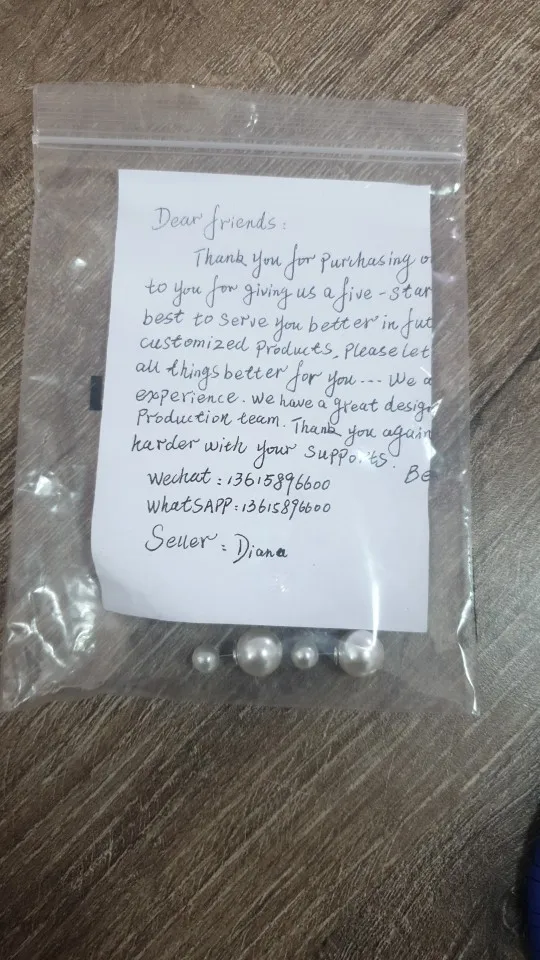 Dear friends:
Thank you for purchasing
to you for giving us a five-star
best to serve you better in fut
customized products. Please let
all things better for you... We a
experience. we have a great design
Production team. Thank you again
harder with your supports.
Be
Wechat: 13615896600
WhatSAPP: 13615896600
Seller: Diana